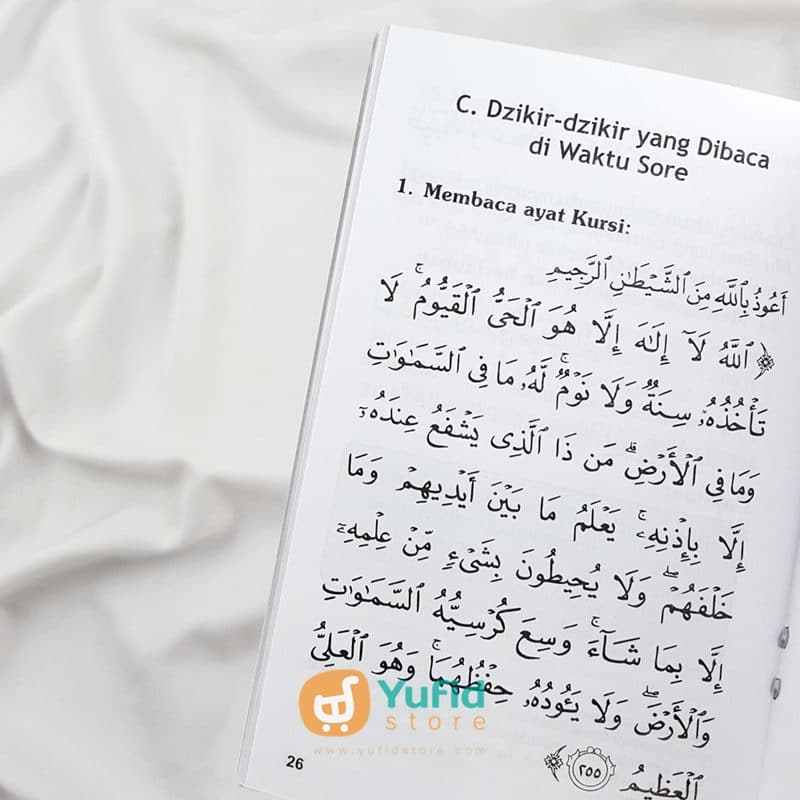 C. Dzikir-dzikir yang Dibaca
di Waktu Sore
1. Membaca ayat Kursi:
أَعُوذُ بِاللَّهِ مِنَ الشَّيْطَانِ الرَّجِيمِ
﴿ ٱللَّهُ لَآ إِلَٰهَ إِلَّا هُوَ ٱلْحَىُّ ٱلْقَيُّومُ ۚ لَا
تَأْخُذُهُۥ سِنَةٌ وَلَا نَوْمٌ ۚ لَّهُۥ مَا فِى ٱلسَّمَٰوَٰتِ
وَمَا فِى ٱلْأَرْضِ ۗ مَن ذَا ٱلَّذِى يَشْفَعُ عِندَهُۥٓ
إِلَّا بِإِذْنِهِۦ ۚ يَعْلَمُ مَا بَيْنَ أَيْدِيهِمْ وَمَا
خَلْفَهُمْ ۖ وَلَا يُحِيطُونَ بِشَىْءٍ مِّنْ عِلْمِهِۦٓ
إِلَّا بِمَا شَآءَ ۚ وَسِعَ كُرْسِيُّهُ ٱلسَّمَٰوَٰتِ
وَٱلْأَرْضَ ۖ وَلَا يَـُٔودُهُۥ حِفْظُهُمَا ۚ وَهُوَ ٱلْعَلِىُّ
ٱلْعَظِيمُ ٢٥٥ ﴾
26
Yufid
store
www.yufidstore.com